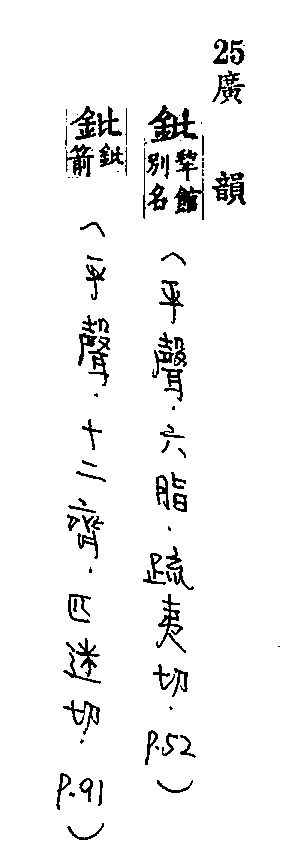 25廣韻
鈚 犂錧別名（平聲．六脂．疏夷切．p.52）
鈚 鈚箭（平聲．十二齊．匹迷切．p.91）